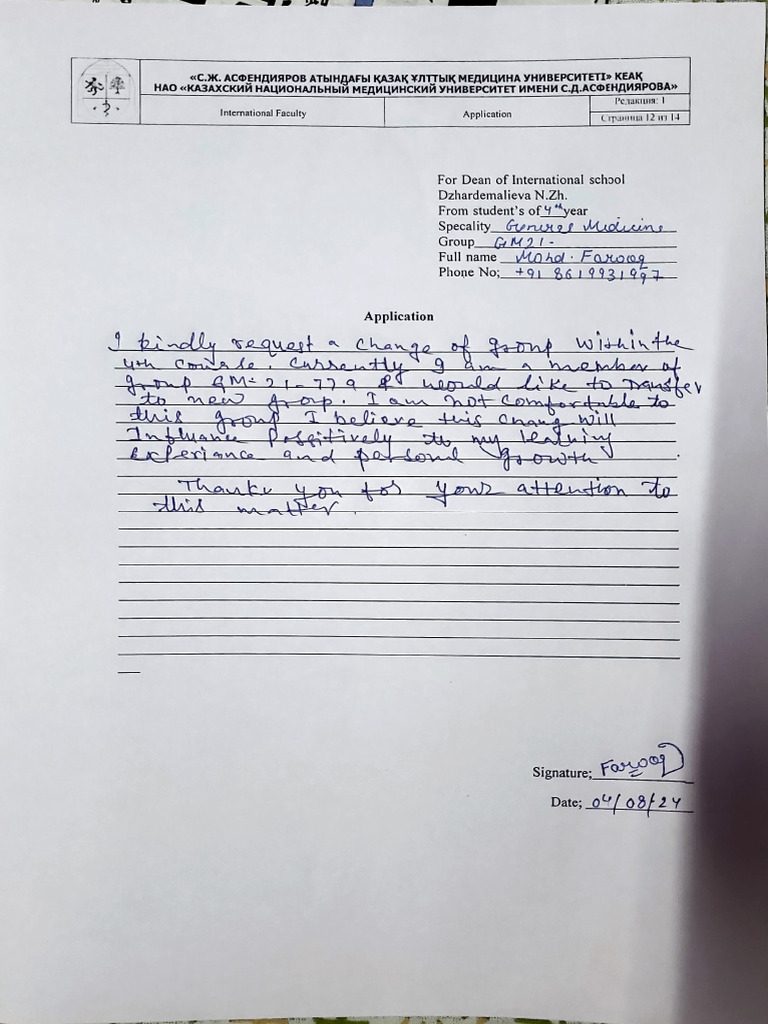 «С.Ж. АСФЕНДИЯРОВ АТЫНДАҒЫ ҚАЗАҚ ҰЛТТЫҚ МЕДИЦИНА УНИВЕРСИТЕТІ» КЕАҚ
НАО «КАЗАХСКИЙ НАЦИОНАЛЬНЫЙ МЕДИЦИНСКИЙ УНИВЕРСИТЕТ ИМЕНИ С.Д.АСФЕНДИЯРОВА»
International Faculty
Application
Редакция: 1
Страница 12 из 14
For Dean of International school
Dzhardemalieva N.Zh.
From student's of 4th year
Specality General Medicine
Group GM21-
Full name Mohd. Farooq
Phone No; +91 8619931997
Application
I kindly request a change of group within the
4th course. Currently I am a member of
group GM-21- & would like to Transfer
to new group. I am not comfortable to
this group I believe this chang will
Influance Possitively to my learning
experiance and personal growth
Thanks you for your attention to
this matter.
Signature; Farooq
Date; 04/08/24